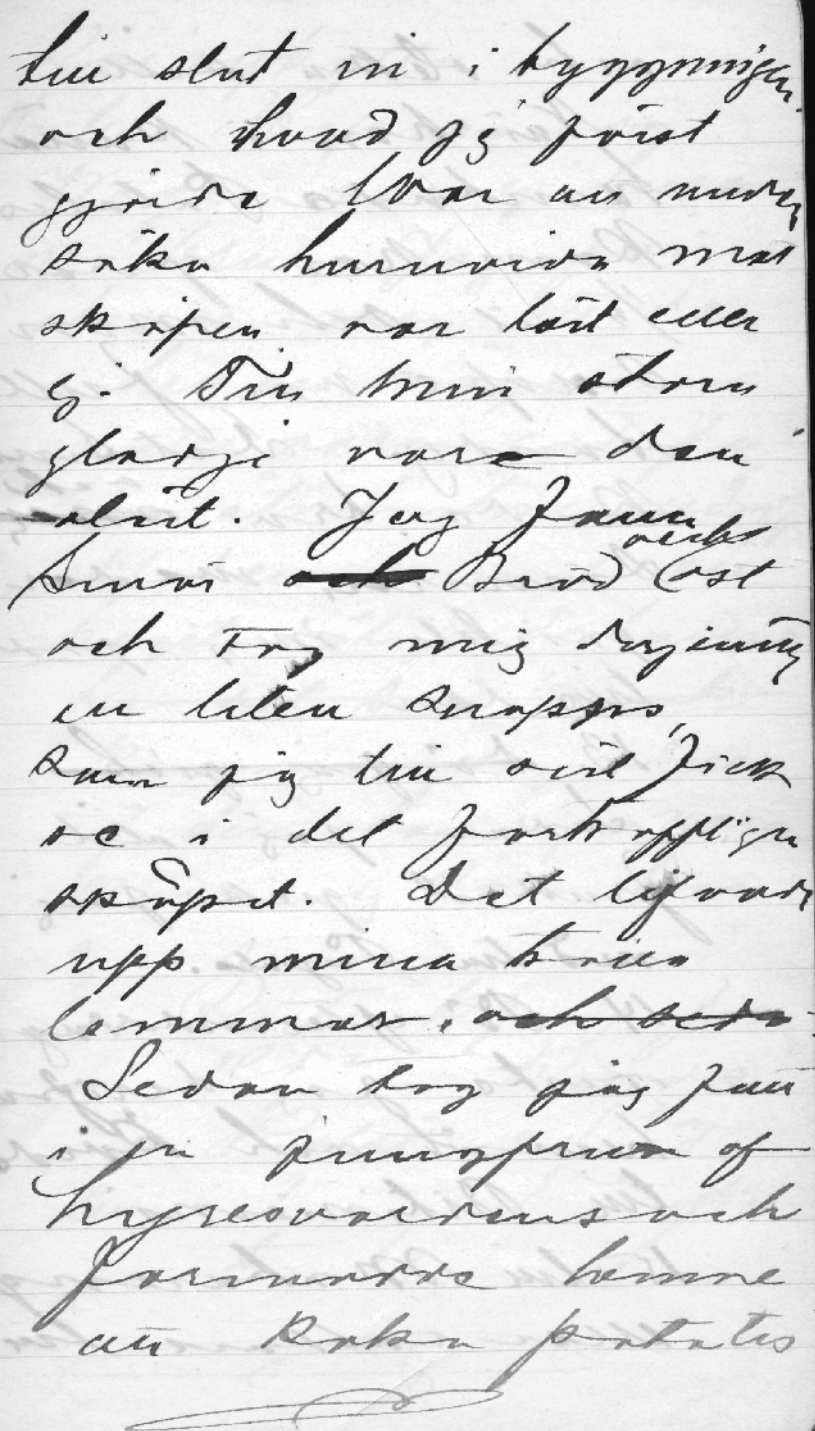 till slut in i byggningen
och hvad jg först
gjorde var att under
söka huruvida mat
skåpen var låst eller
ej. Till min stora
glädje vara den
olåst. Jag fann
Smör och Bröd och ost
och tog mig
en liten snapps,
som jag till sist fick
se i det
skåpet. Det lifvade
upp mina
lemmar, och seda
Sedan tog jag fatt
i jungfrun af
hyresvärdens och
förmådde henne
att koka potatis